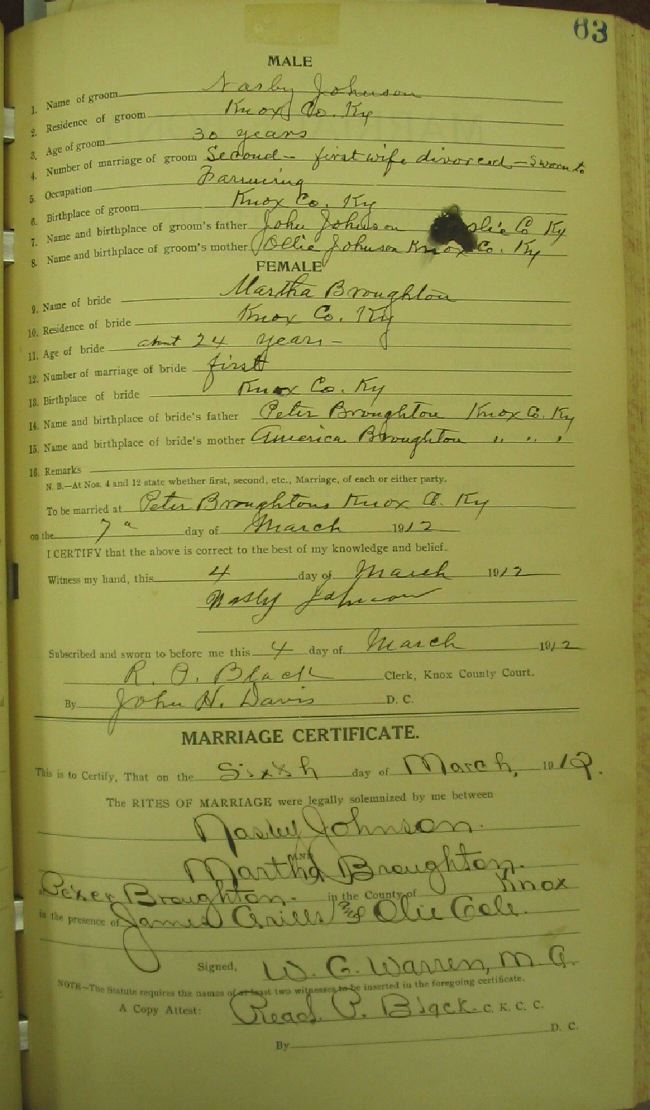 63
MALE
1. Name of groom Nasby Johnson
2. Residence of groom Knox Co. Ky
3. Age of groom 30 years
4. Number of marriage of groom Second - first wife divorced - Sworn to
5. Occupation Farming
6. Birthplace of groom Knox Co. Ky
7. Name and birthplace of groom's father John Johnson slie Co Ky
8. Name and birthplace of groom's mother Ollie Johnson Knox Co. Ky
FEMALE
9. Name of bride Martha Broughton
10. Residence of bride Knox Co. Ky
11. Age of bride about 24 years -
12. Number of marriage of bride first
13. Birthplace of bride Knox Co. Ky
14. Name and birthplace of bride's father Peter Broughton Knox Co. Ky
15. Name and birthplace of bride's mother America Broughton " " "
16. Remarks
N. B.—At Nos. 4 and 12 state whether first, second, etc., Marriage, of each or either party.
To be married at Peter Broughtons Knox Co. Ky
on the 7 day of March 1912
I CERTIFY that the above is correct to the best of my knowledge and belief.
Witness my hand, this 4 day of March 1912
Nasby Johnson
Subscribed and sworn to before me this 4 day of March 1912
R. O. Black Clerk, Knox County Court.
By John H. Davis D. C.
MARRIAGE CERTIFICATE.
This is to Certify, That on the Sixth day of March, 1912.
The RITES OF MARRIAGE were legally solemnized by me between
Nasby Johnson.
AND
Martha Broughton.
Peter Broughton. in the County of Knox
in the presence of James Grills and Olie Cole.
Signed, W. G. Warren, M. G.
NOTE—The Statute requires the names of at least two witnesses to be inserted in the foregoing certificate.
A Copy Attest: Read P. Black. C. K. C. C.
By D. C.